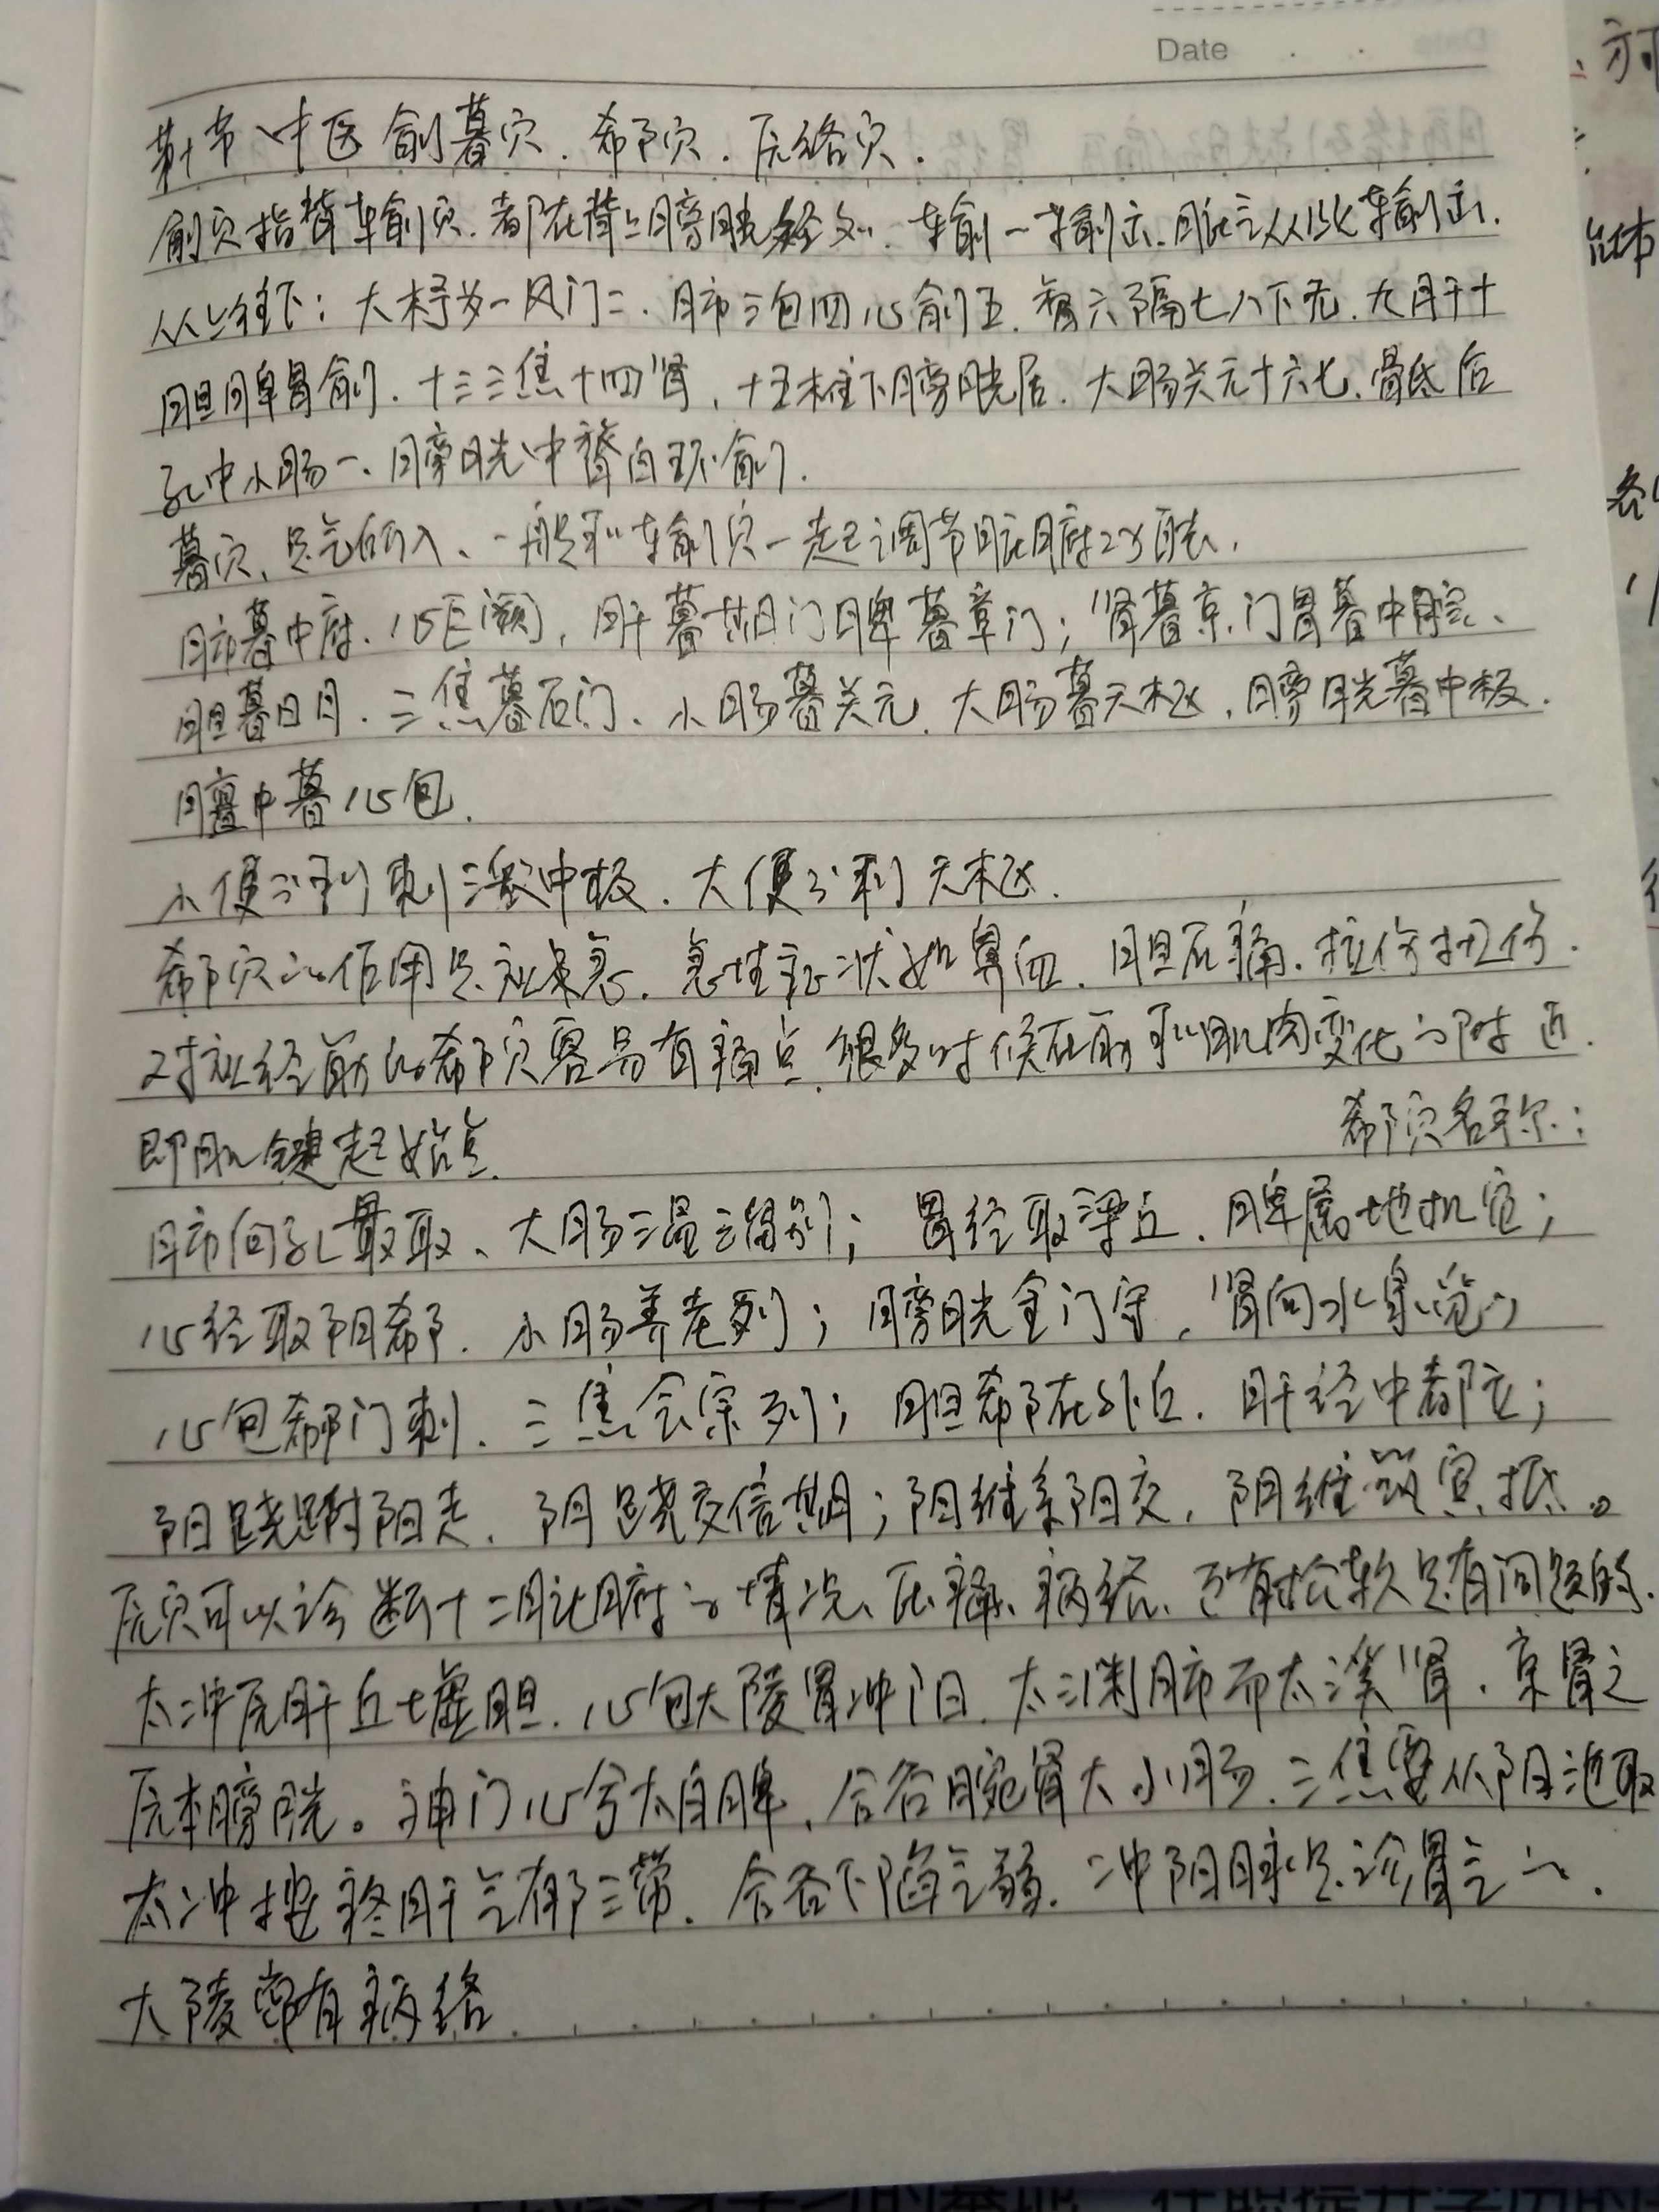 Date
第十节 中医俞募穴.郄穴.原络穴.
俞穴指背输俞穴.都在背上膀胱经外.输俞一输俞出.脏之从此输俞出.
从上往下:大杼为一风门二.肺三包四心俞五.督六膈七八下无.九肝十
胆脾胃俞.十三三焦十四肾,十五椎下膀胱居.大肠关元十六七.骨底后
孔中小肠一、膀胱中膂白环俞.
募穴,是气所入、一般和输俞穴一起调节脏腑
肺募中府.心巨阙,肝募期门脾募章门;肾募京门胃募中脘、
胆募日月.三焦募石门、小肠募关元.大肠募天枢,膀胱募中极.
膻中募心包.
小便不利刺激中极.大便不利天枢.
郄穴的作用是救急.急性症状如鼻血、胆石痛.拉伤扭伤.
对于经筋的郄穴容易有痛点.很多时候在筋和肌肉变化的附近.
即肌腱起始点. 郄穴名称:
肺向孔最取、大肠温溜别;胃经取梁丘.脾属地机宜;
心经取阴郄.小肠养老列;膀胱金门守,肾向水泉觅;
心包郄门刺.三焦会宗列;胆郄在外丘.肝经中都立;
阳跷跗阳走.阴跷交信期;阳维系阳交,阴维筑宾抵。
原穴可以诊断十二脏腑的情况、压痛、结、还有软是有问题的.
太冲原肝丘墟胆.心包大陵胃冲阳.太渊肺而太溪肾.京骨之
原本膀胱。神门心兮太白脾,合谷腕骨大小肠.三焦要从阳池取
太冲按痛肝气有郁滞.合谷下陷气弱.冲阳脉是诊胃气.
大陵常有结